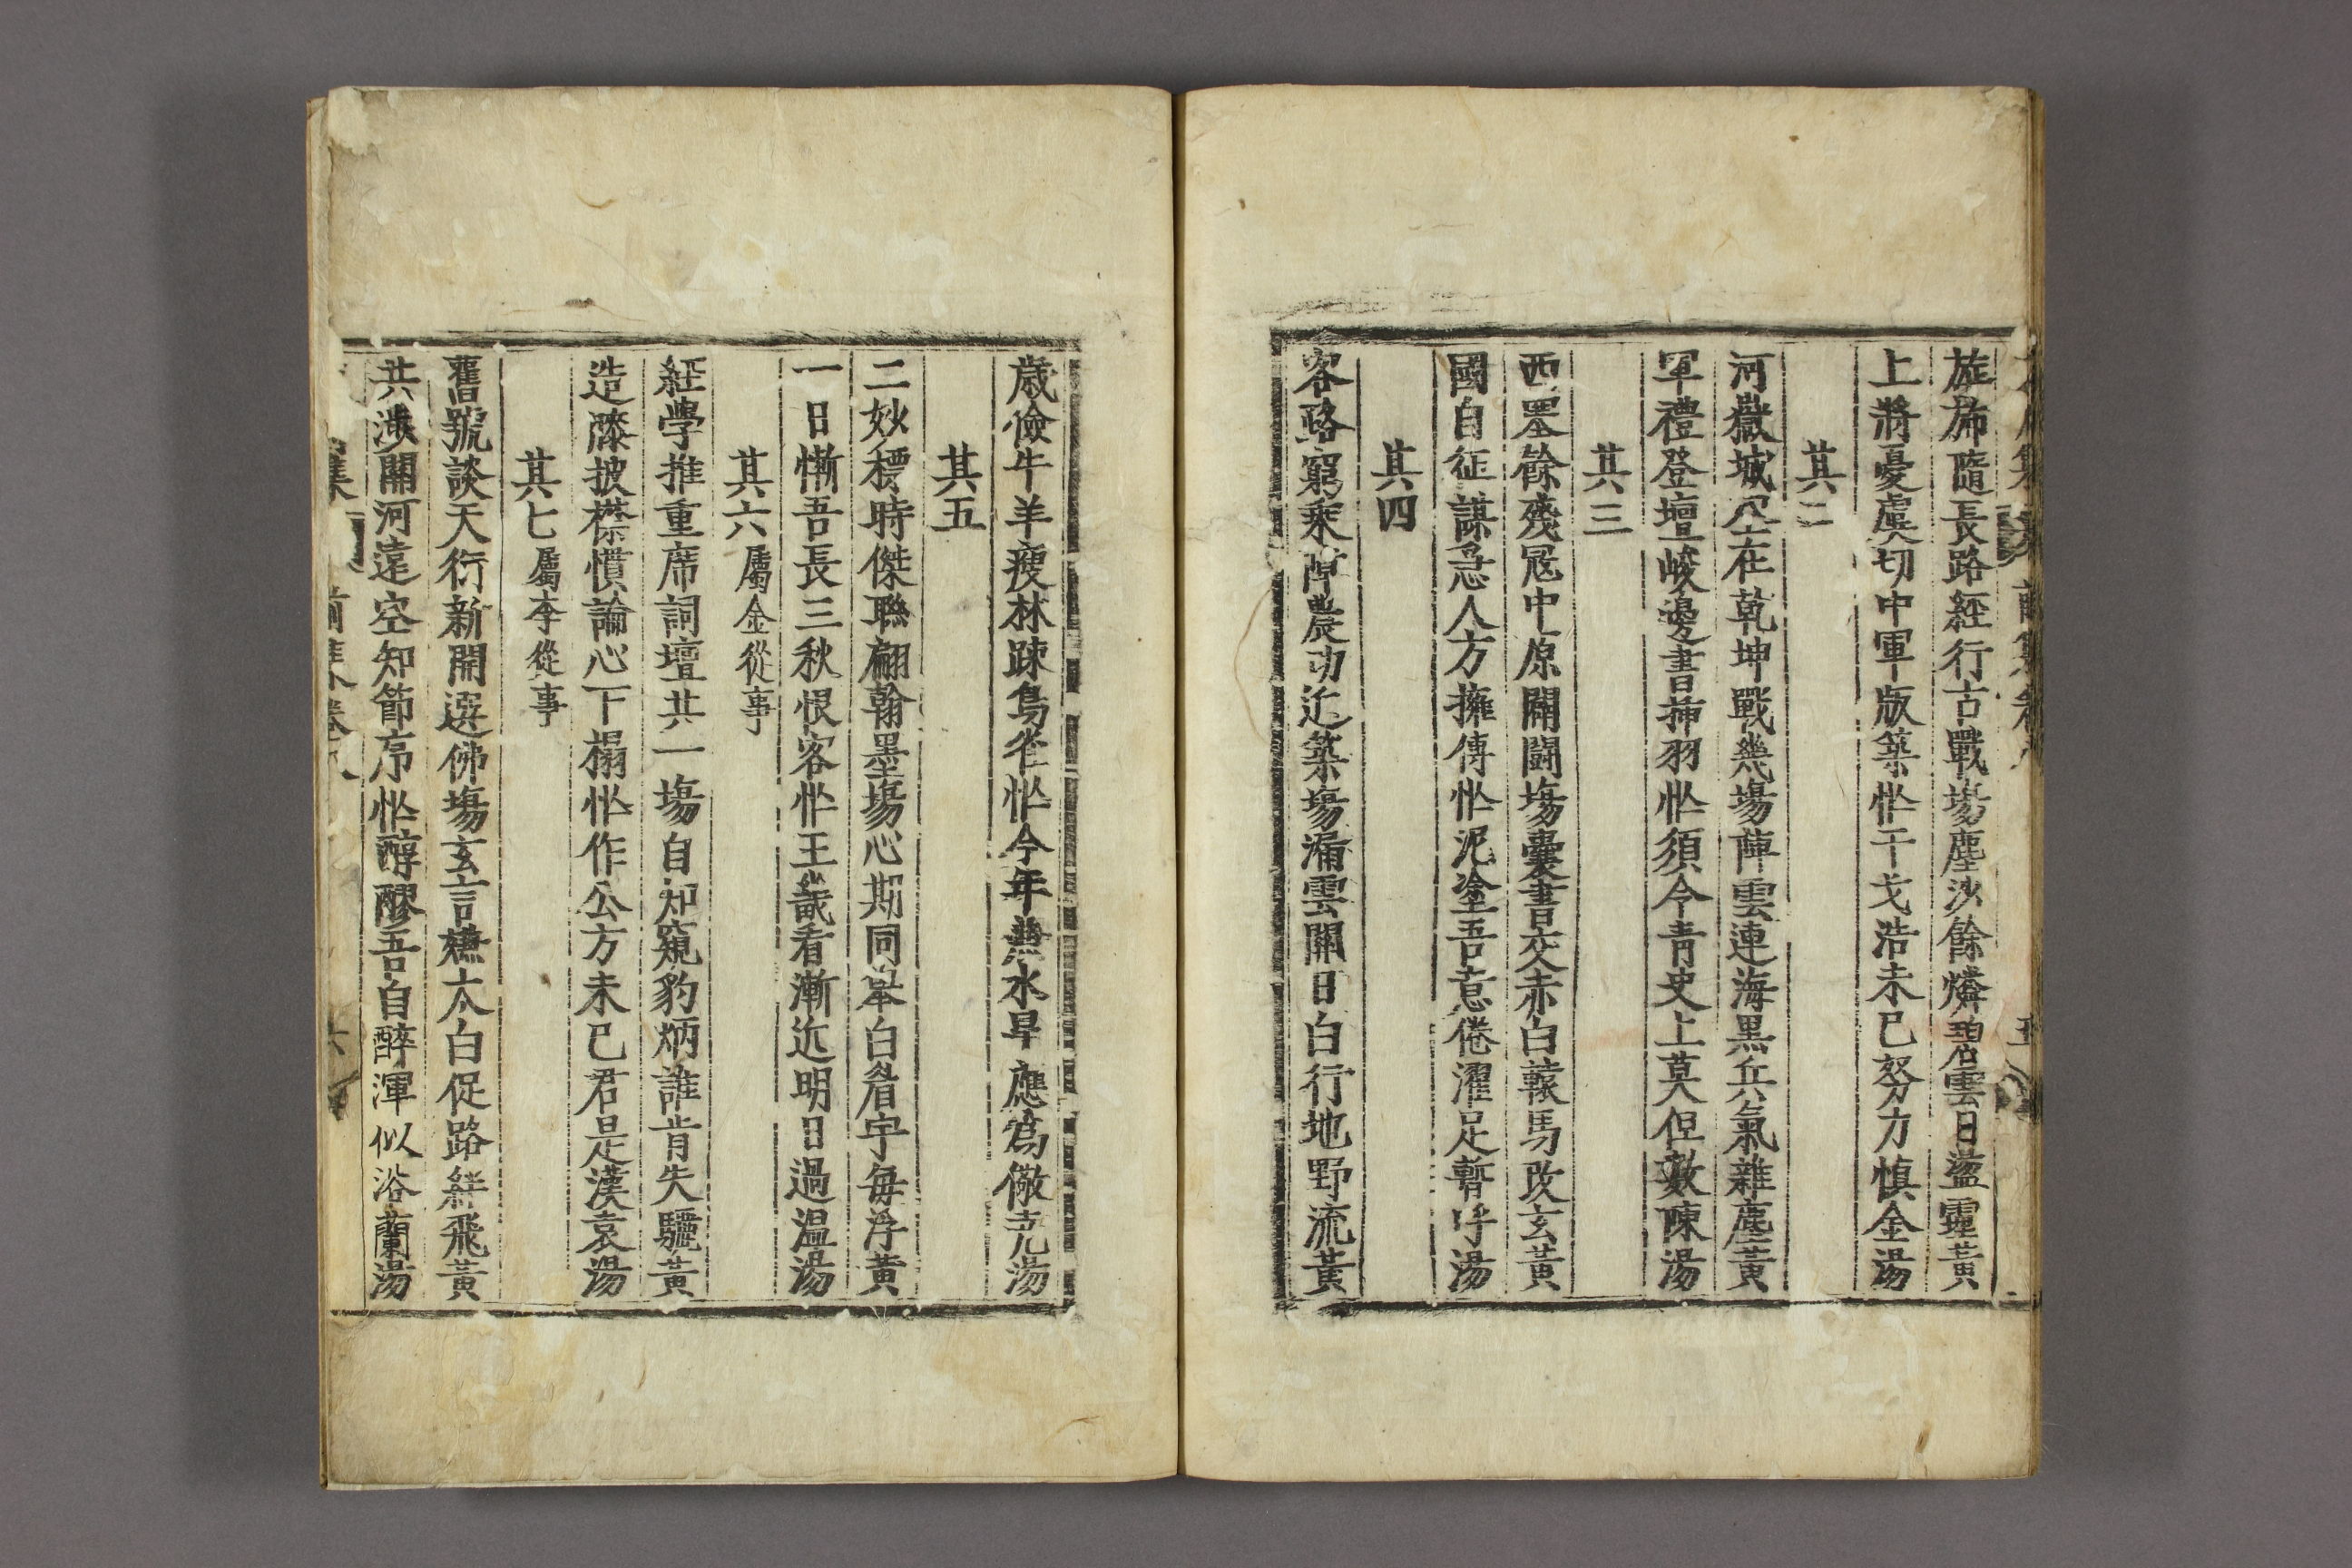 旌旆隨長路經行古戰場塵沙餘燐碧雲日盪霾黃
上將憂虞切中軍版築忙干戈浩未已努力慎金湯
其二
河嶽城空在乾坤戰幾場陣雲連海黑兵氣雜塵黃
軍禮登壇峻邊書揷羽忙須令靑史上莫但數陳湯
其三
西墨餘殘冦中原鬪鬪場囊書交赤白轅馬改玄黃
國自征謀急人方擁傳忙泥塗吾意倦濯足暫呼湯
其四
客路窮乘障農功近築場漏雲開日白行地野流黃
歲儉牛羊瘦林踈鳥雀忙今年無水旱應爲儆堯湯
其五
二妙標時傑聯翩翰墨場心期同擧白眉宇每浮黃
一日慚吾長三秋恨客忙王畿看漸近明日過温湯
其六 屬金從事
經學推重席詞壇共一場自知窺豹炳誰肯失驪黃
造膝披襟慣論心下榻忙作公方未已君是漢袁湯
其七 屬李從事
舊號談天衍新開選佛場玄言
太白促路
飛黃
共
關河遠空知節序忙醇醪吾自醉渾似浴蘭湯